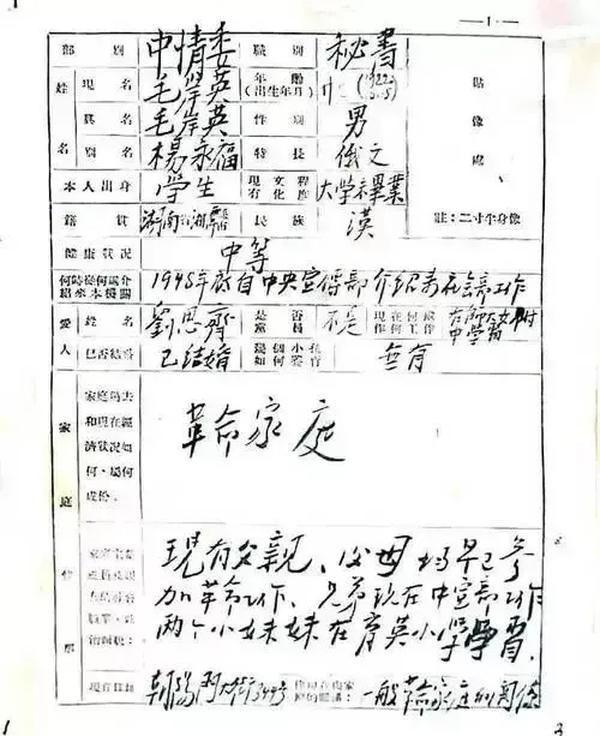 —1·—
部別 中情委 職別 秘書
姓名 現名 毛岸英 年齡(出生年月) (1922
貼像處
真名 毛岸英 性別 男
別名 楊永福 特長 俄文
本人出身 學生 現有文化程度 大学未畢業
籍貫 湖南省湘潭 民族 漢 註:二寸半身像
健康狀況 中等
何時從何處介紹來本機關 1948年底自中央宣傳部介紹來在会部工作
愛人 姓名 劉思齊 是否黨員 不是 現在何處作何工作 在師大女附中學習
已否結婚 已結婚 幾個小孩如何養育 無有
家庭情形
家庭過去和現在經濟狀況如何、屬何成份: 革命家庭
現有父親、父母均早已参
加革命工作、兄弟现在中宣部工作
两个小妹妹在育英小學學習.
現有住址 朝陽門大街 一般革命家庭的關係